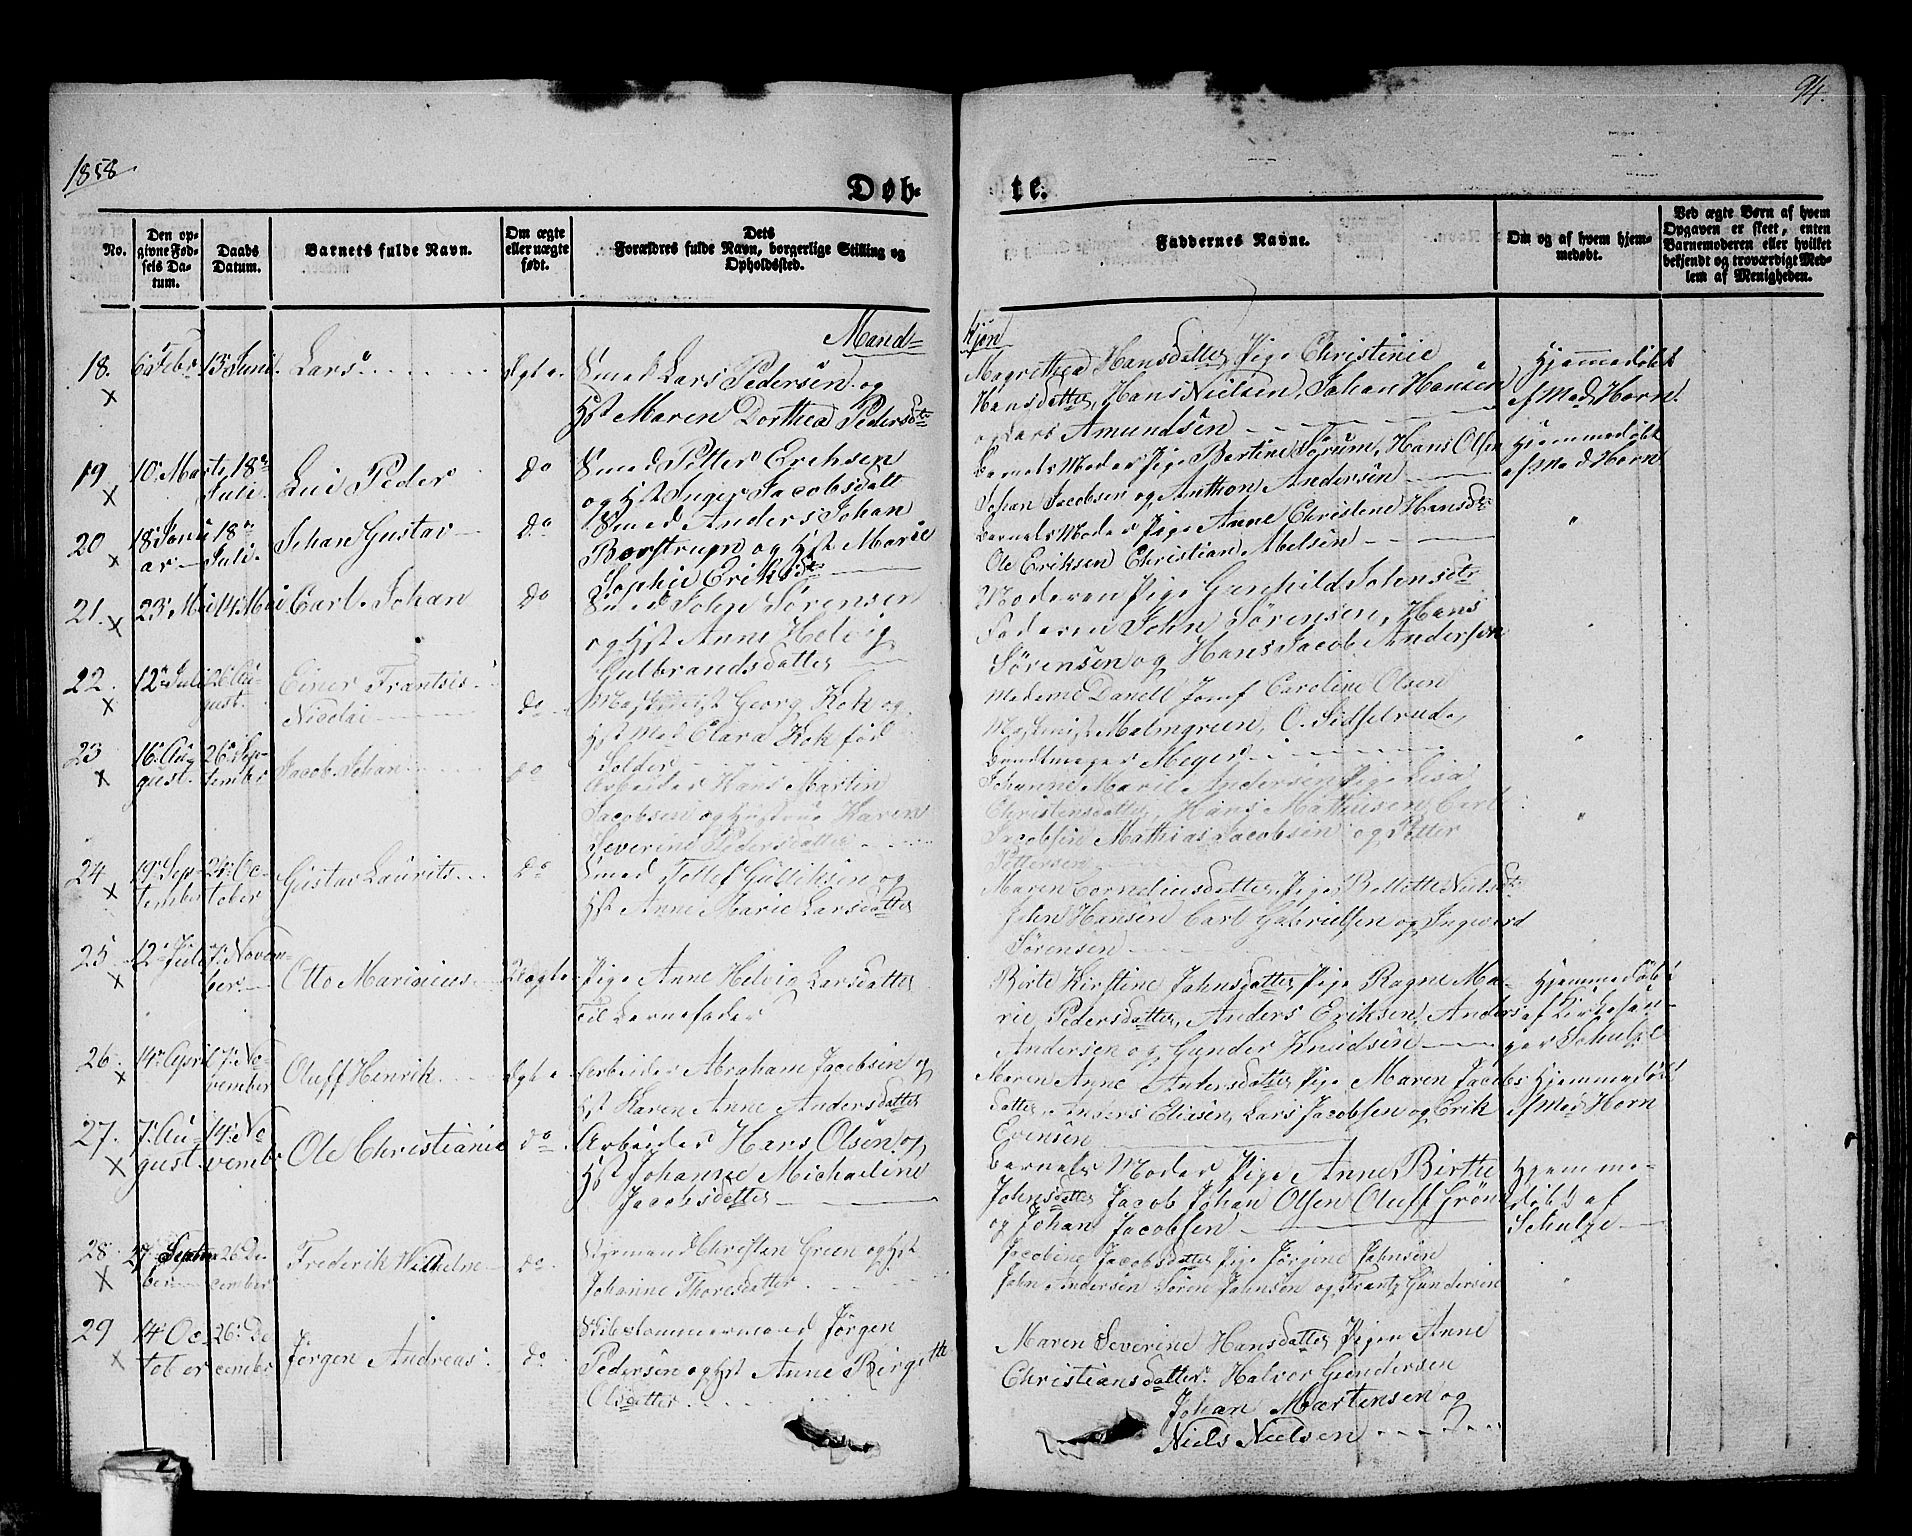 1858
94.
Døb-
te.
No.
Den op-
givne Fød-
sels Da-
tum.
Daabs
Datum.
Barnets fulde Navn.
Om ægte
eller uægte
født.
Dets
Forældres fulde Navn, borgerlige Stilling og
Opholdssted.
Faddernes Navne.
Om og af hvem hjem-
medøbt.
Ved ægte Børn af hvem
Opgaven er skeet, enten
Barnemoderen eller hvilket
bekjendt og troværdigt Med-
lem af Menigheden.
Mand-
kjøn
18. 6 Febr 13 Juni Lars Ægte Smed Lars Pedersen og
Hst Maren Dorthea Pedersdtr
Magrethea Hansdatter, Pige Christinie
Hansdatter, Hans Nielsen, Johan Hansen
og Lars Amundsen
Hjemmedøbt
af Mad Horn.
19 10 Marts 18
Juli Lui Peder Do Smed Petter Eriksen
og Hst Inger Jacobsdatt
Barnets Moder Pige Bertine Sørum, Hans Olsen
Johan Jacobsen og Anthon Andersen
Hjemmedøbt
af Mad Horn
20 18 Janu
ar 18
Juli Johan Gustav Do Smed Anders Johan
Borstrupn og Hst Marie
Sophie Eriksdtr
Barnets Moder Pige Anne Christene Hansdtr
Ole Eriksen Christian Abelsen
"
21. 23 Mai 14 Mai Carl Johan Do Smed John Sørensen
og Hst Anne Helvig
Gulbrandsdatter
Moderen Pige Gunhild Johnsdtr
Faderen John Sørensen, Hans
Sørensen og Hans Jacob Andersen
"
22. 12 Juli 26 Au-
gust. Einer Frantsis
Nicolai Do Maskinist Georg Kok og
Hst Mad Clara Kok fød
Solder
Mademe Danell Jomf Caroline Olsen
Maskinist Malmgreen, O. Sidselrude,
Bundtmager Meyer
"
23 16 Au
gust. 26 Sep
tember Jacob Johan do Arbeider Hans Martin
Jacobsen og Hustrue Karen
Severine Pedersdatter
Johanne Marie Andersen Pige Lisa
Christensdatter, Hans Mathiesen Carl
Jacobsen Mathias Jacobsen og Petter
Pettersen
"
24 19 Sep-
tember 24 Oc-
tober Gustav Laurits Do Smed Tollef Gulliksen og
Hst Anne Marie Larsdatter
Maren Corneliusdatter, Pige Bellotte Nielsdtr
John Hansen Carl Gabrielsen og Ingward
Sørensen
"
25 12 Juli 7 Novem-
ber. Otto Marinius Uægte Pige Anne Helvig Larsdatter
Til Barnefader
Birte Kirstine Jahnsdatter, Pige Ragne Ma-
rie Pedersdatter, Anders Eriksen, Anders
Andersen og Gunder Knudsen
Hjemmedøbt
af Kirkesan-
ger Schulze
26 14 April 7 No-
vember Oluff Henrik Ægte Arbeider Abraham Jacobsen og
Hst Karen Anne Andersdatter
Maren Anne Andersdatter, Pige Maren Jacobs
datter, Anders Eliesen, Lars Jacobsen og Erik
Evensen
Hjemmedøbt
af Mad Horn
27. 7 Au-
gust. 14 No
vembr Ole Christianie do Arbeider Hans Olsen og
Hst Johanne Michaeline
Jacobsdatter
Barnets Moder Pige Anne Birthe
Johnsdatter Jacob Johan Olsen Oluff Grøn
og Johan Jacobsen
Hjemme-
døbt af
Schulze
28. 27 Septem
ber 26 De
cember Frederik Wilhelm do Styrmand Christen Green og Hst
Johanne Thoresdatter
Jacobine Jacobsdatter Pige Jørgine Jahnsen
Jahn Andersen Søren Jahnsen og Frantz Gundersen
"
29 14 Oc-
tober 26 De
cembr Jørgen Andreas Do Skibstømmermand Jørgen
Pedersen og Hst Anne Birgitte
Olsdatter
Maren Severine Hansdatter, Pigen Anne
Christiansdatter. Halvor Gundersen
Johan Martensen og
Niels Nielsen